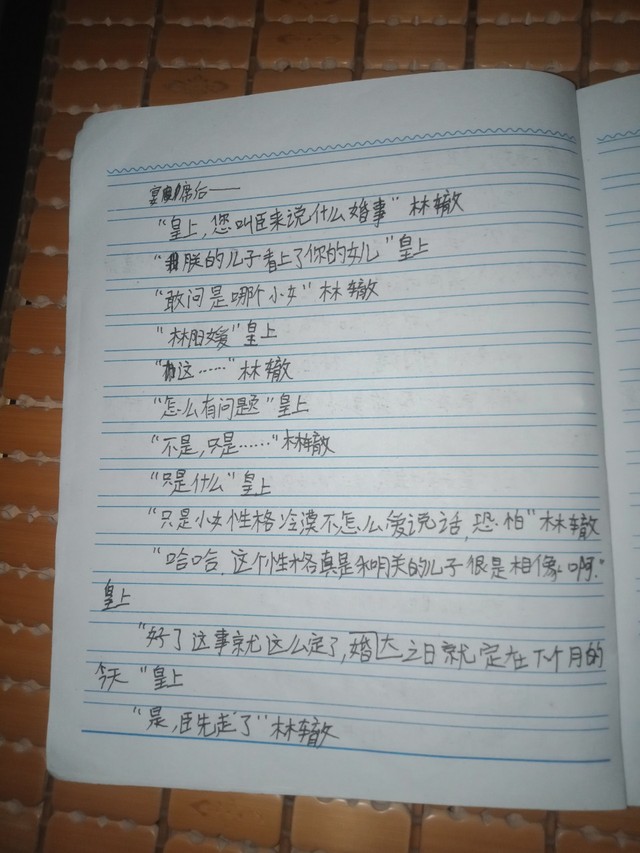 宴席后——
“皇上，您叫臣来说什么婚事”林辙
“朕的儿子看上了你的女儿”皇上
“敢问是哪个小女”林辙
“林媛”皇上
“这……”林辙
“怎么有问题”皇上
“不是，只是……”林辙
“只是什么”皇上
“只是小女性格冷漠不怎么爱说话，恐怕”林辙
“哈哈，这个性格真是和的儿子很是相像啊。”
皇上
“好了这事就这么定了，婚大之日就定在下个月的
今天”皇上
“是，臣先走了”林辙